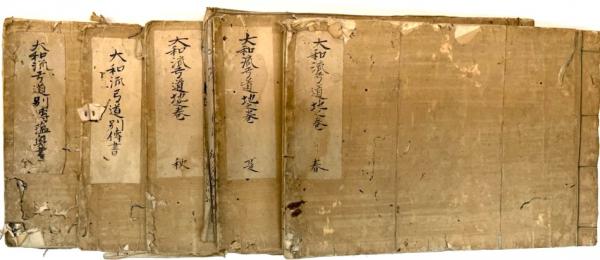 大和流弓道地之巻
春
大和流弓道地之巻
夏
大和流弓道地之巻
秋
大和流弓道別傳書
大和流弓道別傳蘊奥書